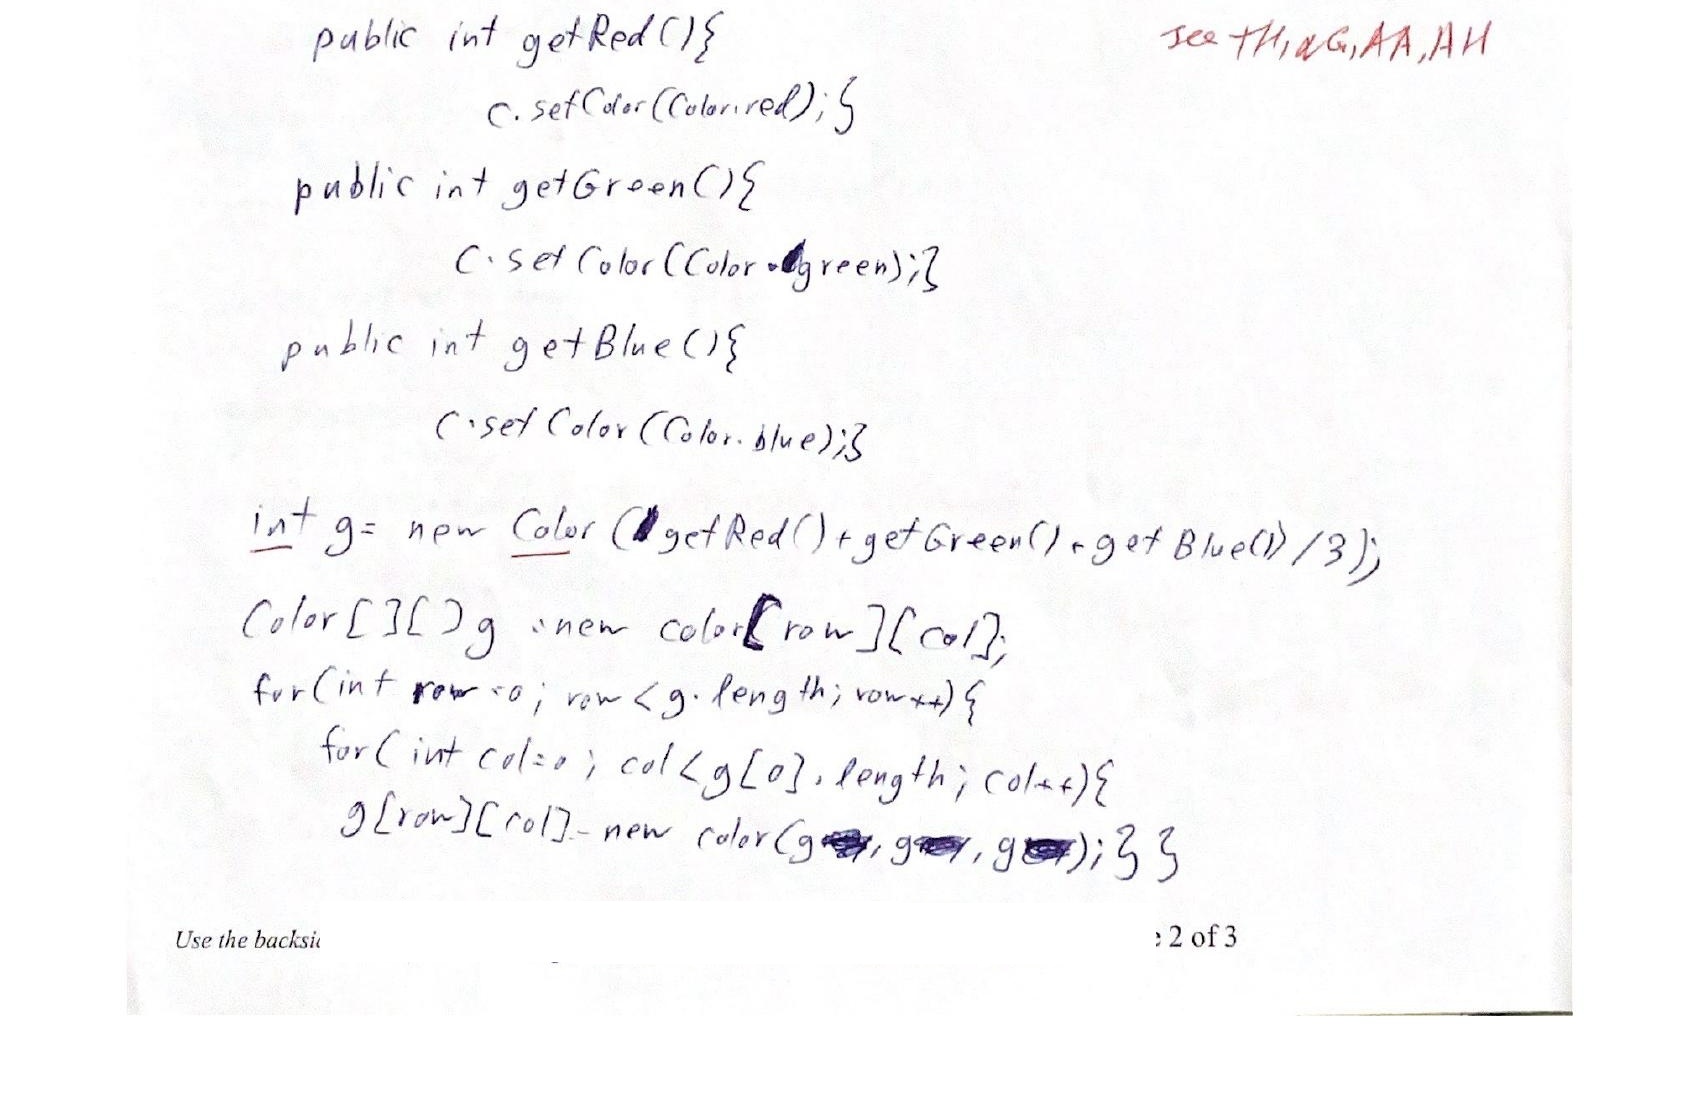 public int getRed(){
see +H, αG, AA, AH
c.setColor(Color.red);}
public int getGreen(){
c.setColor(Color.green);}
public int getBlue(){
c.setColor(Color.blue);}
int g= new Color (getRed()+getGreen()+getBlue())/3);
Color[][]g =new color[row][col];
for(int row=0; row<g.length; row++){
for(int col=0; col<g[0].length; col++){
g[row][col]=new color(g, g, g);}}
Use the backsi
2 of 3